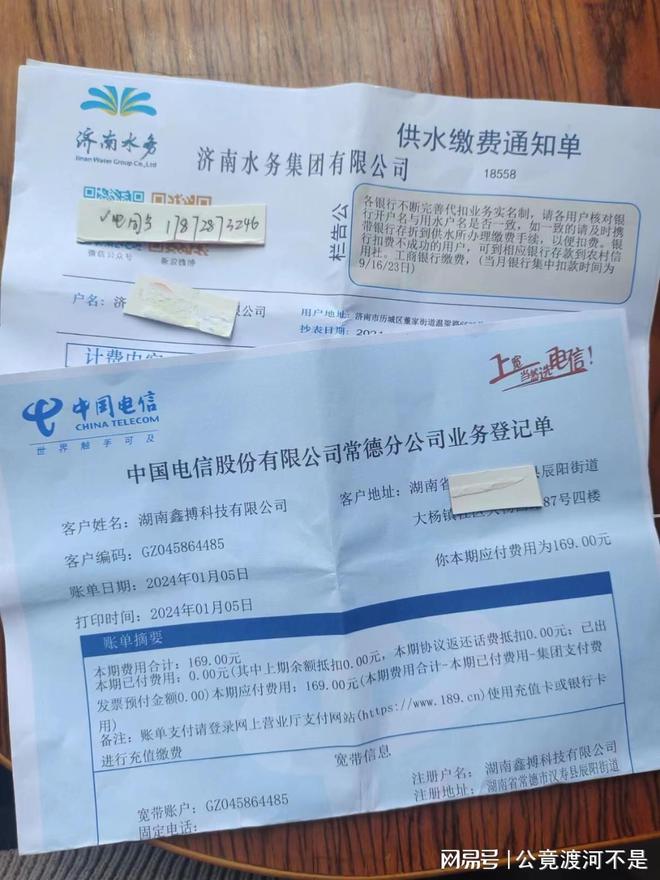 济南水务
Jinan Water Group Co.,Ltd
济南水务集团有限公司
供水缴费通知单
18558
电同号 17872873246
微信公众号
新浪微博
公告栏
各银行不断完善代扣业务实名制，请各用户核对银
行开户名与用水户名是否一致，如一致的请及时携
带银行存折到供水所办理缴费手续，以便扣费。银
行扣费不成功的用户，可到相应银行存款到农村信
用社。工商银行缴费，(当月银行集中扣款时间为
9/16/23日)
户名：济
公司
用户地址：济南市历城区董家街道温梁路
抄表日期：2024
中国电信
CHINA TELECOM
世界触手可及
上宽当然选电信！
中国电信股份有限公司常德分公司业务登记单
客户姓名：湖南鑫搏科技有限公司
客户地址：湖南省
县辰阳街道
大杨镇
87号四楼
客户编码：GZ045864485
账单日期：2024年01月05日
你本期应付费用为169.00元
打印时间：2024年01月05日
账单摘要
本期费用合计：169.00元
本期已付费用：0.00元(其中上期余额抵扣0.00元，本期协议返还话费抵扣0.00元；已出
发票预付金额0.00)本期应付费用：169.00元(本期费用合计-本期已付费用-集团支付费
用)
备注：账单支付请登录网上营业厅支付网站(https://www.189.cn)使用充值卡或银行卡
进行充值缴费
宽带信息
注册户名：湖南鑫搏科技有限公司
宽带账户：GZ045864485
注册地址：湖南省常德市汉寿县辰阳街道
固定电话：
网易号 | 公竟渡河不是